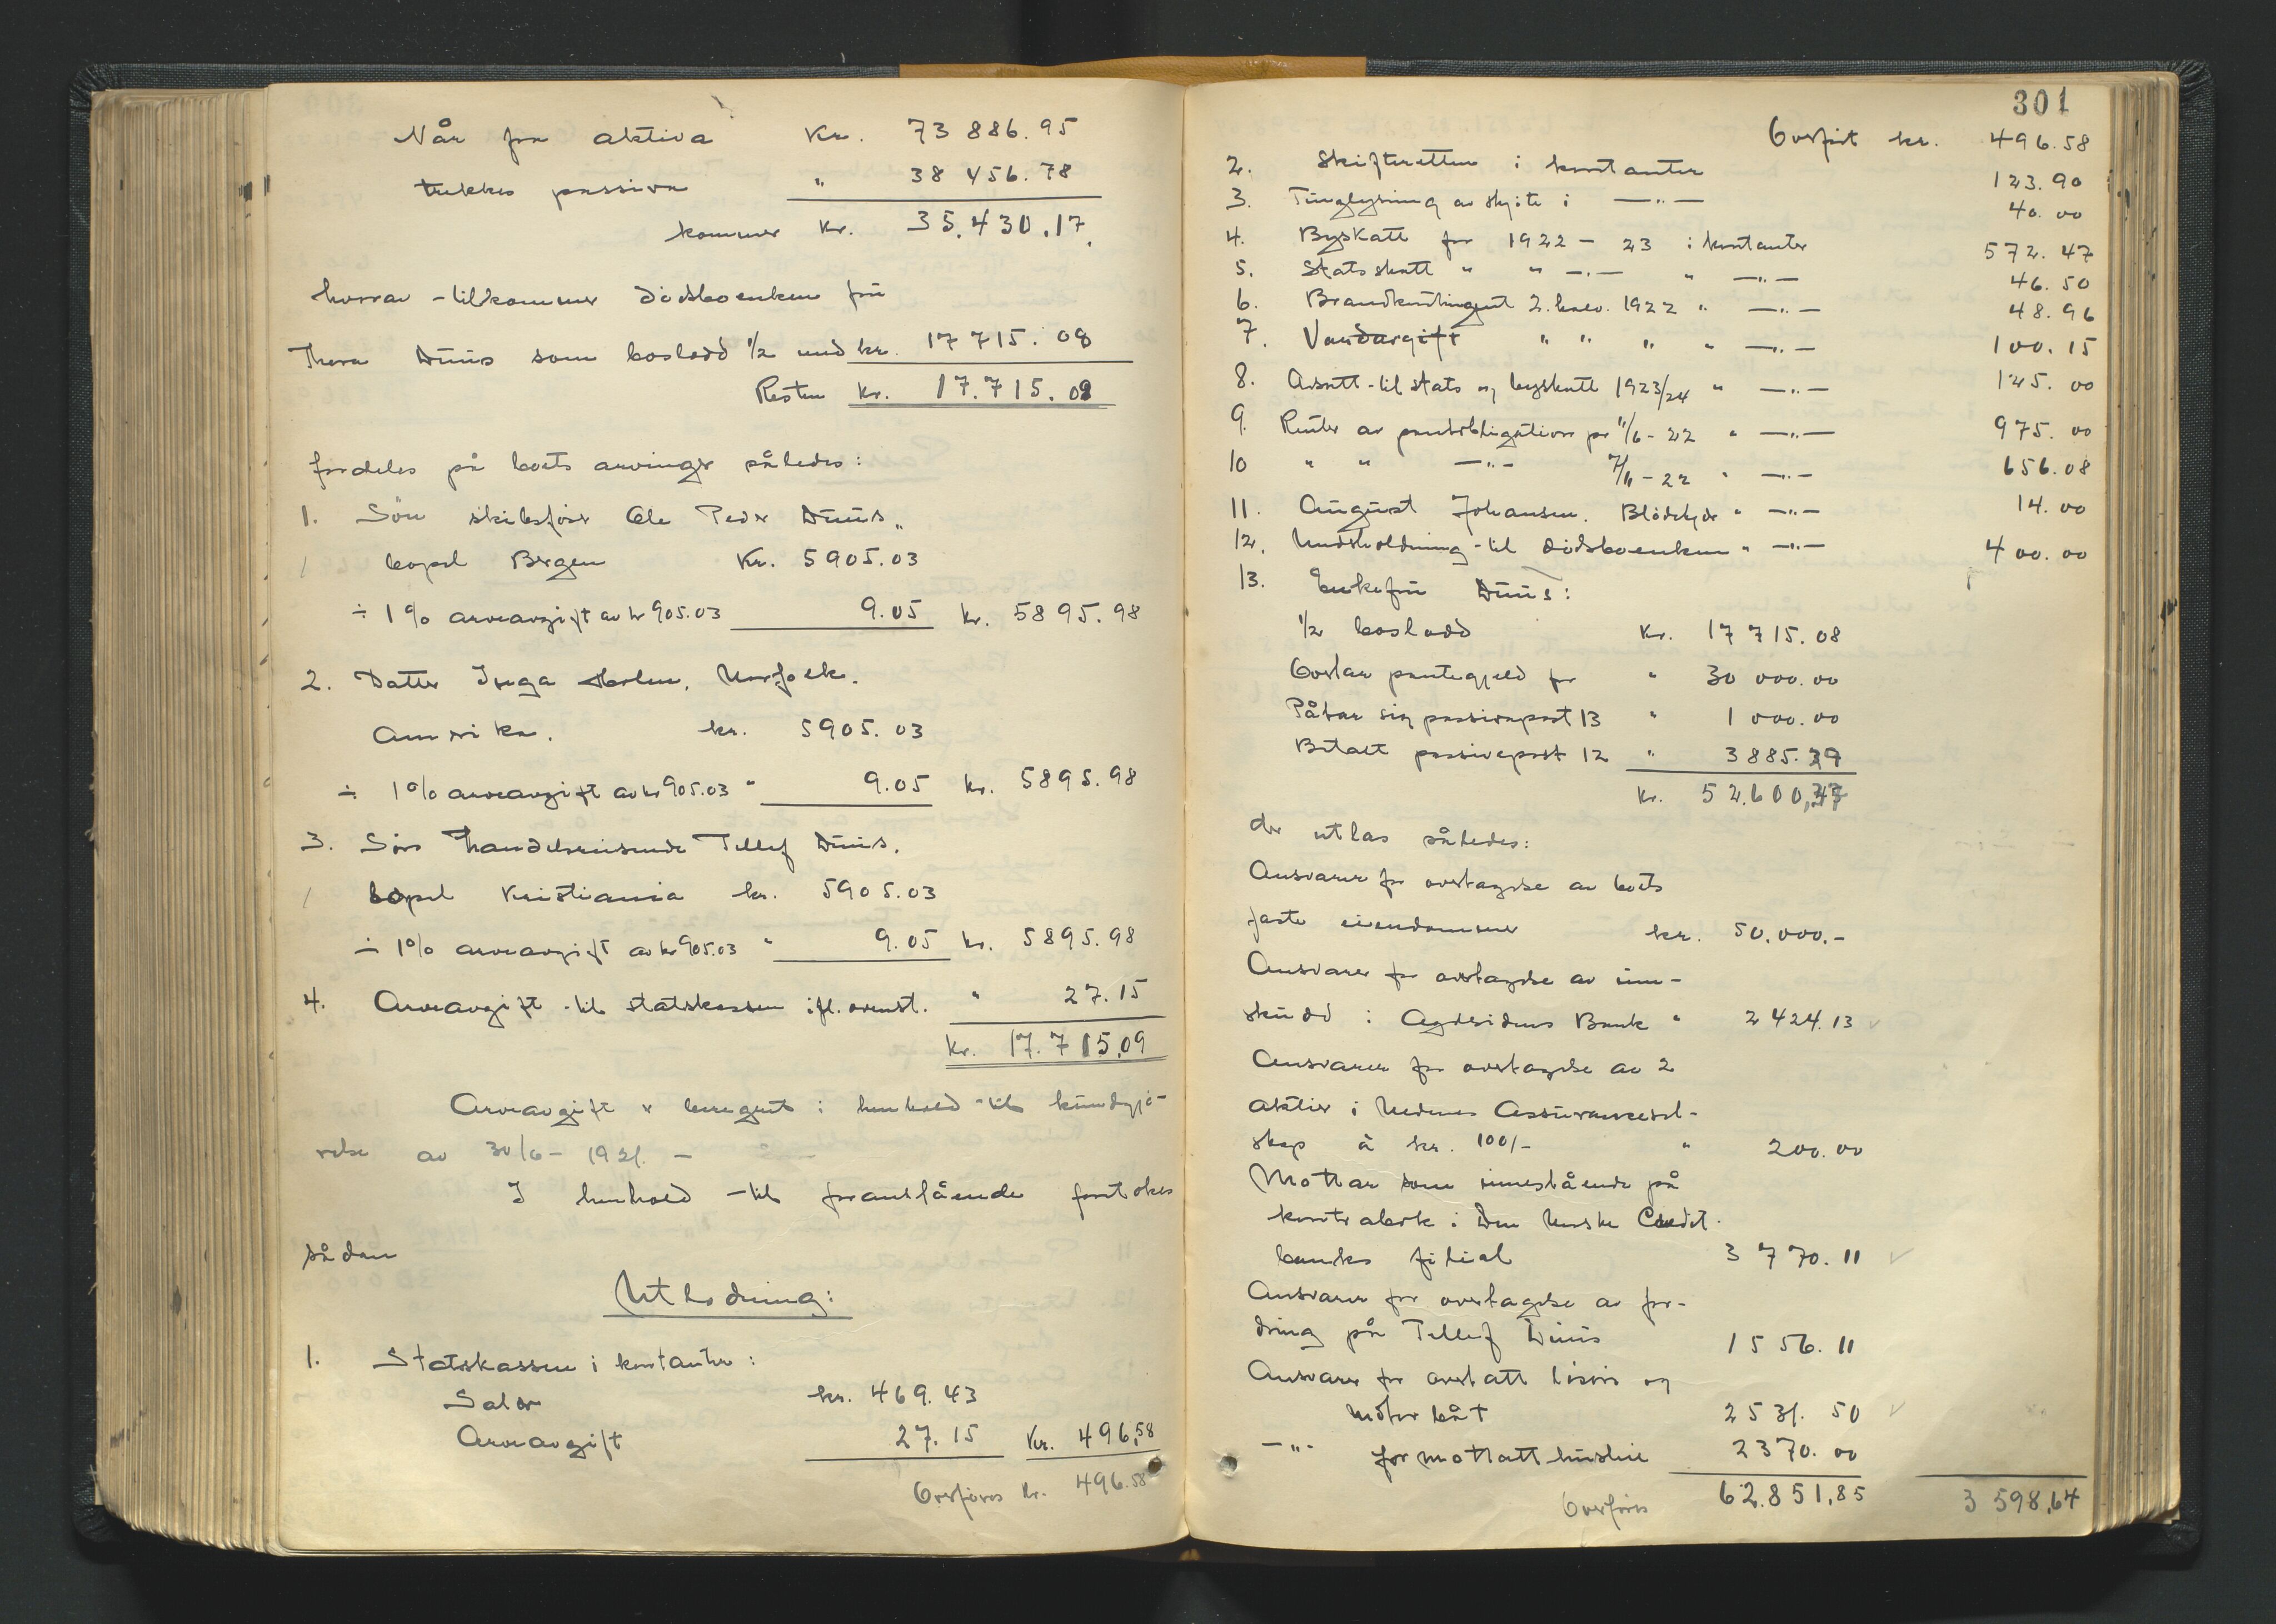 Når fra aktiva Kr. 73 886.95
trekkes passiva " 38 456.78
kommer Kr. 35.430.17.
hvorav tilkommer dødsboenken fru
Thora Duus som boslodd 1/2 med kr. 17 715.08
Resten Kr. 17.715.09
fordeles på boets arvinger således:
1. Søn skibsfører Ole Peder Duus,
bopel Bergen Kr. 5905.03
÷ 1% arveavgift av kr 905.03 9.05 kr. 5895.98
2. Datter Inga Holm, Norfolk.
Amerika. kr. 5905.03
÷ 1% arveavgift av kr 905.03 " 9.05 kr. 5895.98
3. Søn handelsreisende Tellef Duus.
bopel Kristiania kr. 5905.03
÷ 1% arveavgift av kr 905.03 " 9.05 kr. 5895.98
4. Arveavgift til statskassen ifl. ovenst. " 27.15
Kr. 17.715,09
Arveavgift er beregnet i henhold til kundgjø-
relse av 30/6 - 1921. -
I henhold til foranstående foretokes
sådan
Utlodning:
1. Statskassen i kontanter:
Salær kr. 469.43
Arveavgift 27.15 Kr. 496,58
Overføres kr. 496.58
301
Overført kr. 496.58
2. Skifteretten i kontanter 123.90
3. Tinglysning av skjøte i — " — 40.00
4. Byskatt for 1922 - 23 i kontanter 572.47
5. Statsskatt " " — " — " — " — 46.50
6. Brandkontingent 2. halv. 1922 " — " — 48.96
7. Vandavgift " " " " — " — 100.15
8. Avsatt til stats og byskatt 1923/24 " — " — 125.00
9. Renter av pantobligation pr 11/6 - 22 " — " — 975.00
10 " " — " — 7/11 - 22 " — " — 656.08
11. August Johansen. Blødekjær " — " — 14.00
12. Underholdning til dødsboenken " — " — 400.00
13. Enkefru Duus:
1/2 boslodd Kr. 17 715.08
Overtar pantegjeld for " 30 000.00
Påtar sig passivapost 13 " 1 000.00
Betalt passivapost 12 " 3885.39
Kr. 52.600,47
der utlas således:
Ansvarer for overtagelse av boets
faste eiendommer kr. 50.000.-
Ansvarer for overtagelse av inn-
skudd i Agdesidens Bank " 2424.13
Ansvarer for overtagelse av 2
aktier i Nedenes Assuransesel-
skap à kr. 100/- " 200.00
Mottar som innestående på
kontrabok i Den Norske Credit
banks filial 3 770.11
Ansvarer for overtagelse av for-
dring på Tellef Duus 1556.11
Ansvarer for overtatt løsøre og
motorbåt 2531.50
— " — for mottatt husleie 2370.00
Overføres 62.851,85 3 598,64